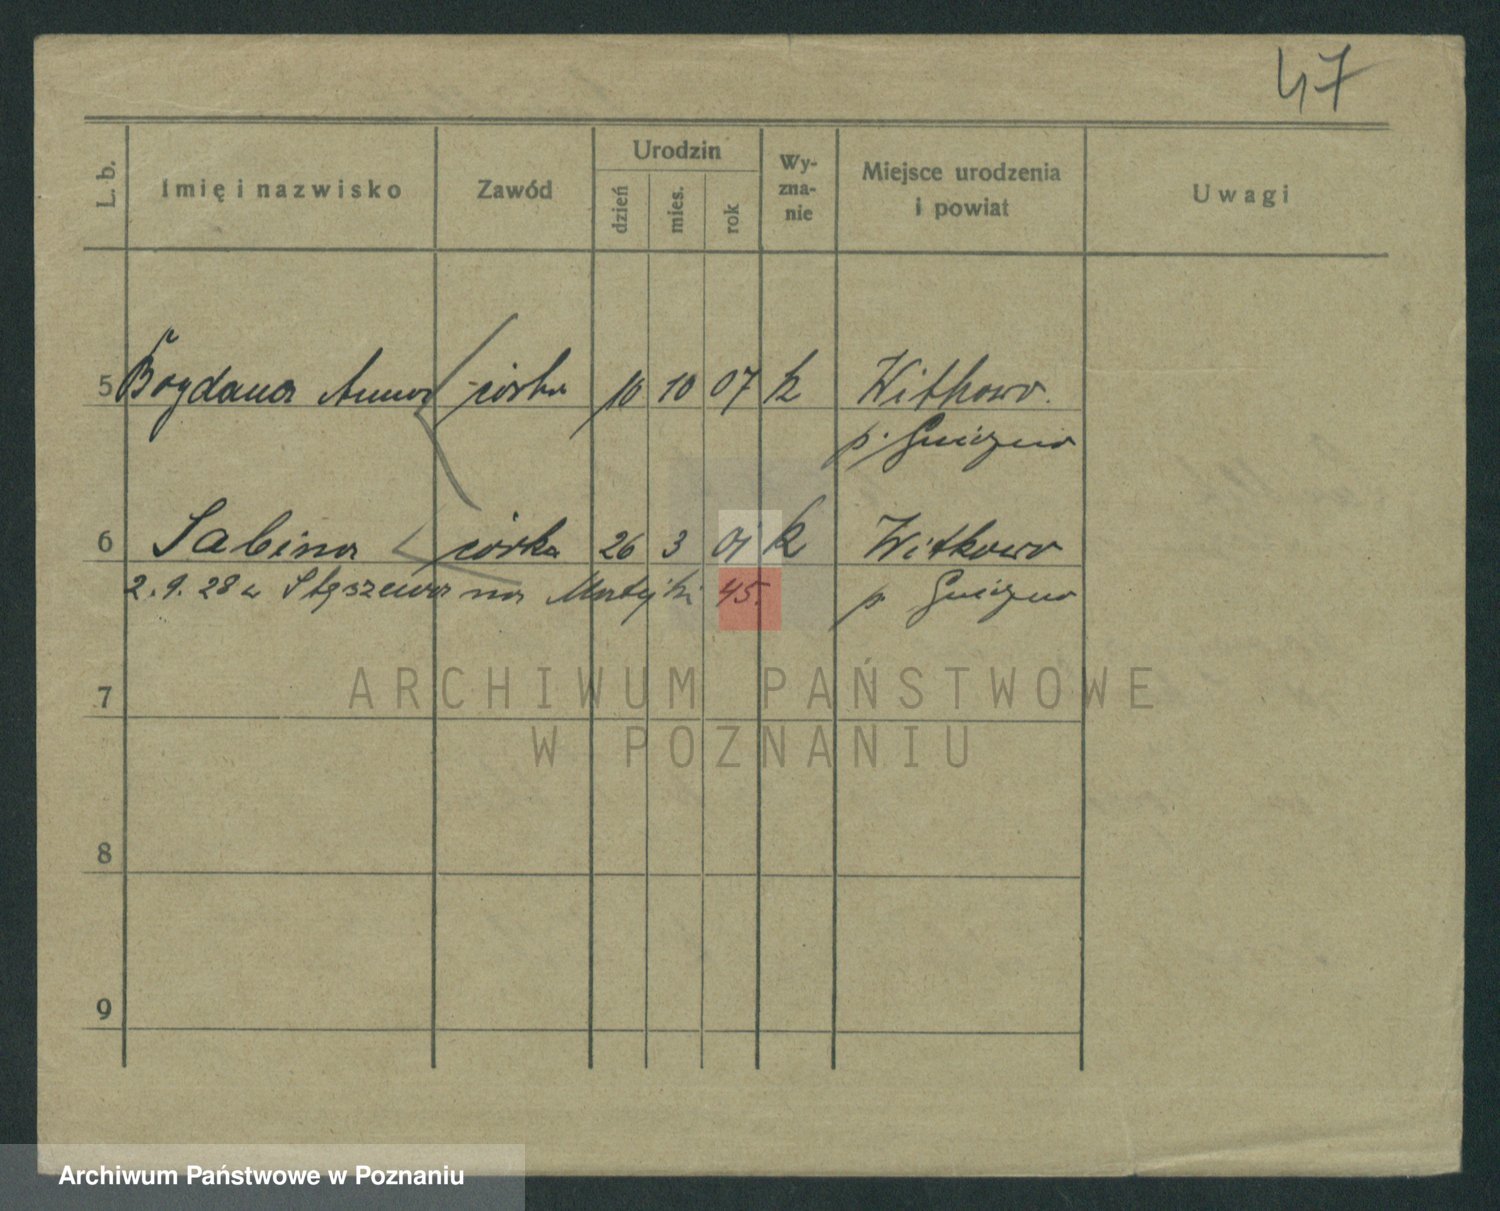 47
L. b.
Imię i nazwisko
Zawód
Urodzin
dzień
mies.
rok
Wy-
zna-
nie
Miejsce urodzenia
i powiat
Uwagi
5 Bogdana Anna córka 10 10 07 k Witkowo.
p. Gniezno
6 Sabina córka 26 3 k Witkowo
2. 9. 28 w Stęszewa na Matejki 45. p. Gniezno
7
ARCHIWUM PAŃSTWOWE
W POZNANIU
8
9
Archiwum Państwowe w Poznaniu